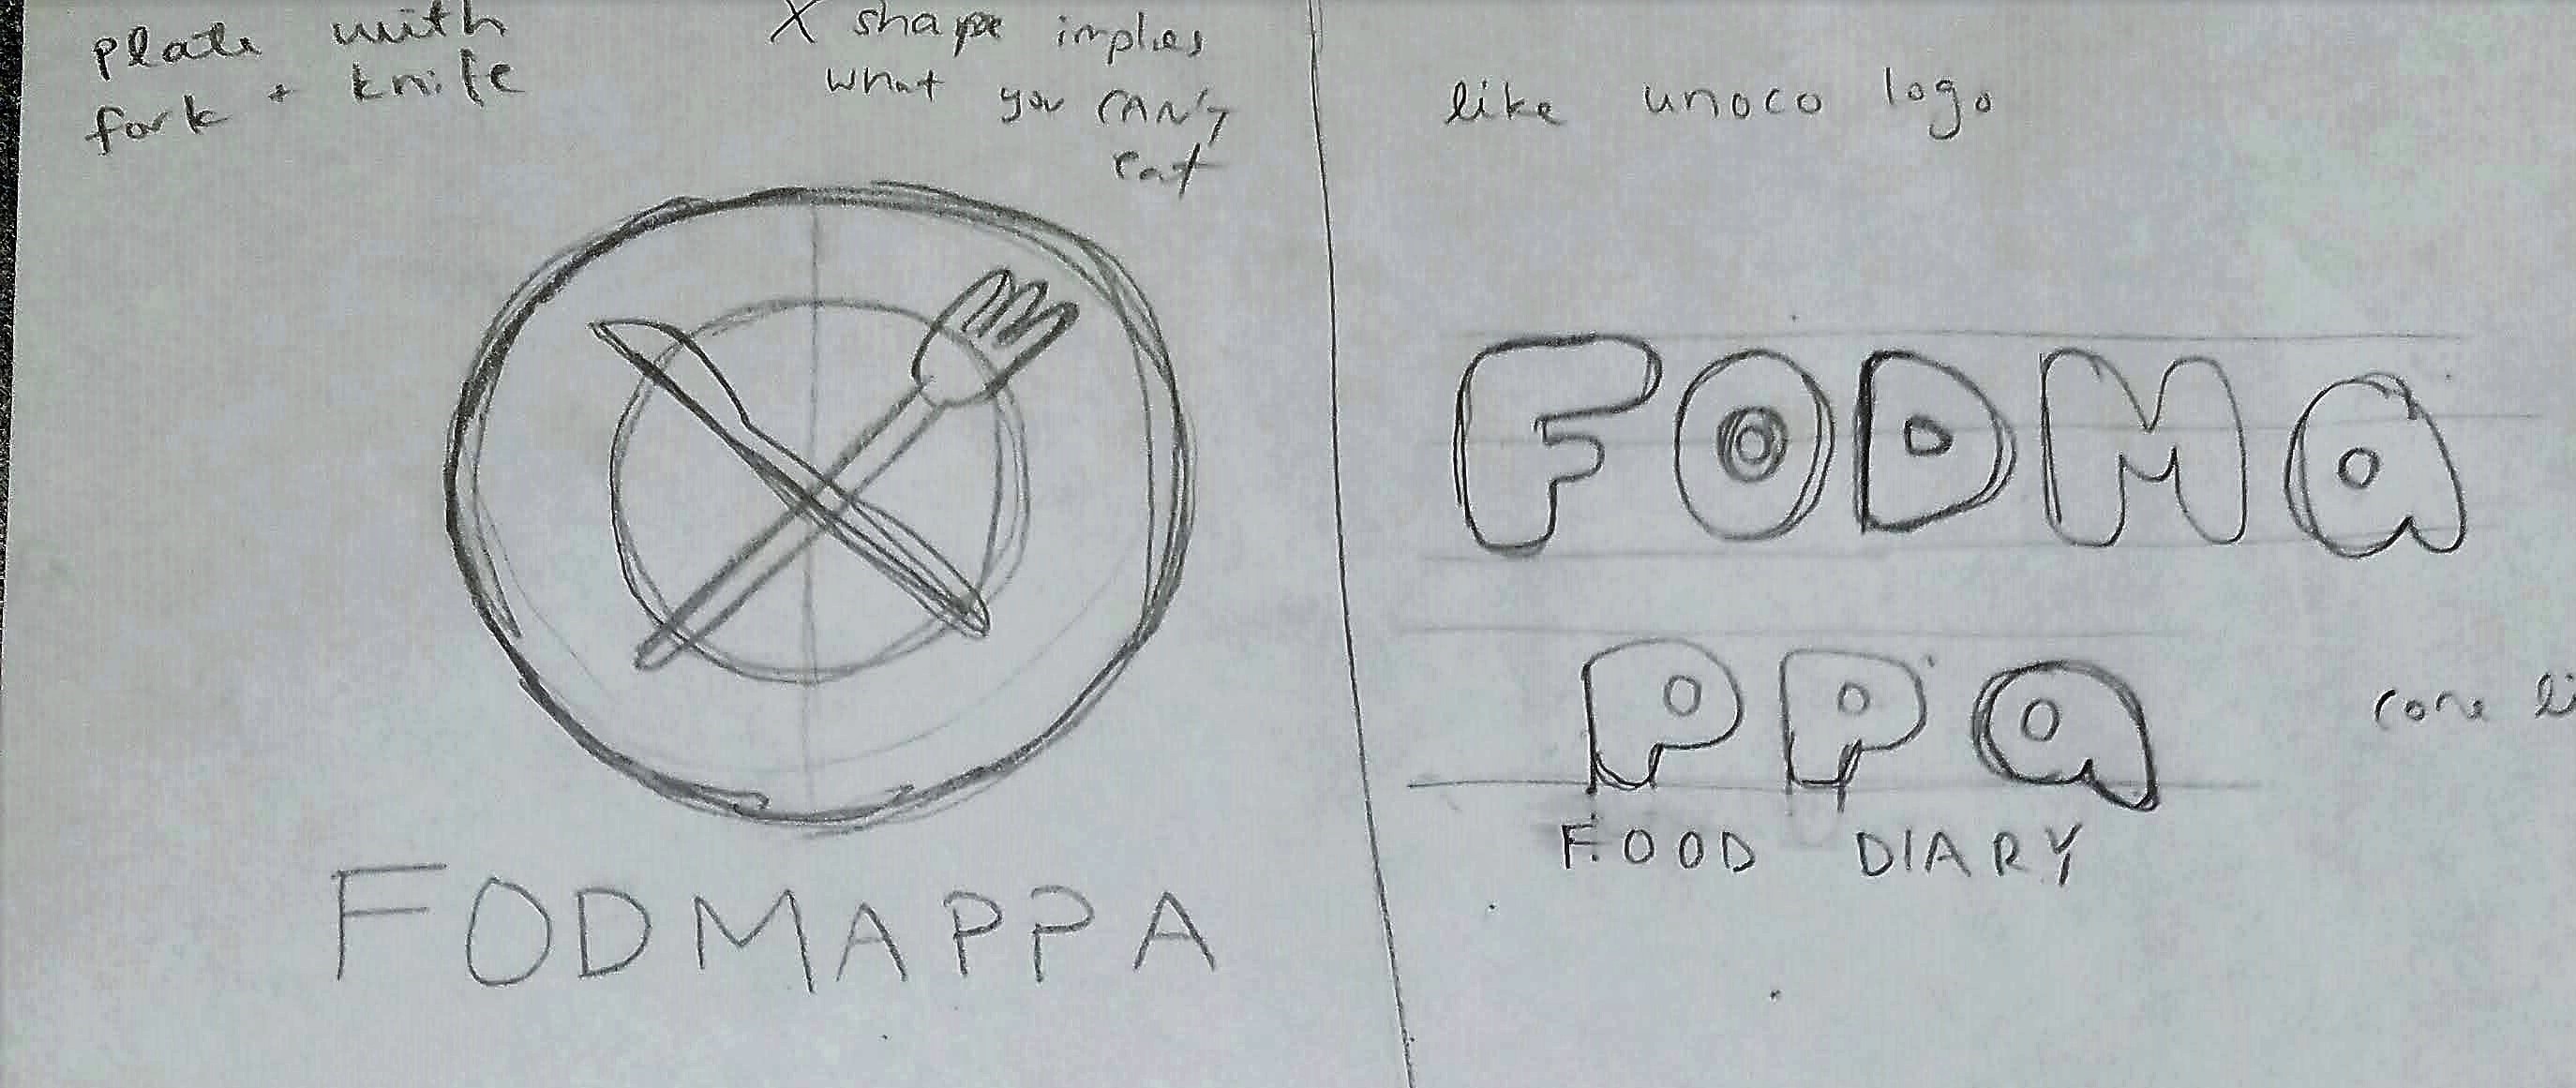 plate with
fork + knife
X shape implies
what you CAN'T
eat
FODMAPPA
like unoco logo
FODMa
PPa
FOOD DIARY